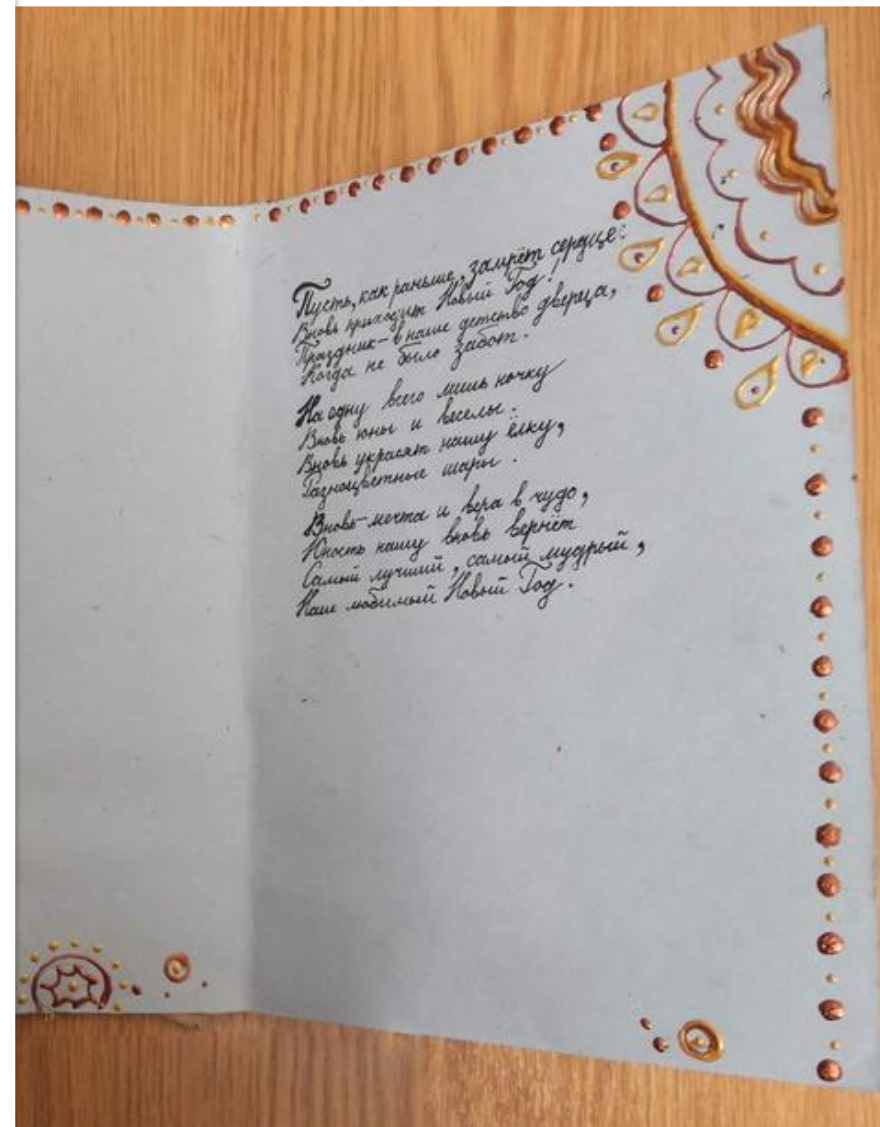 Пусть, как раньше, замрёт сердце:
Вновь приходит Новый Год!
Праздник-в наше детство дверца,
Когда не было забот.
На одну всего лишь ночку
Вновь юны и веселы.
Вновь украсят нашу ёлку,
Разноцветные шары.
Вновь-мечта и вера в чудо,
Юность нашу вновь вернёт
Самый лучший, самый мудрый,
Наш любимый Новый Год.